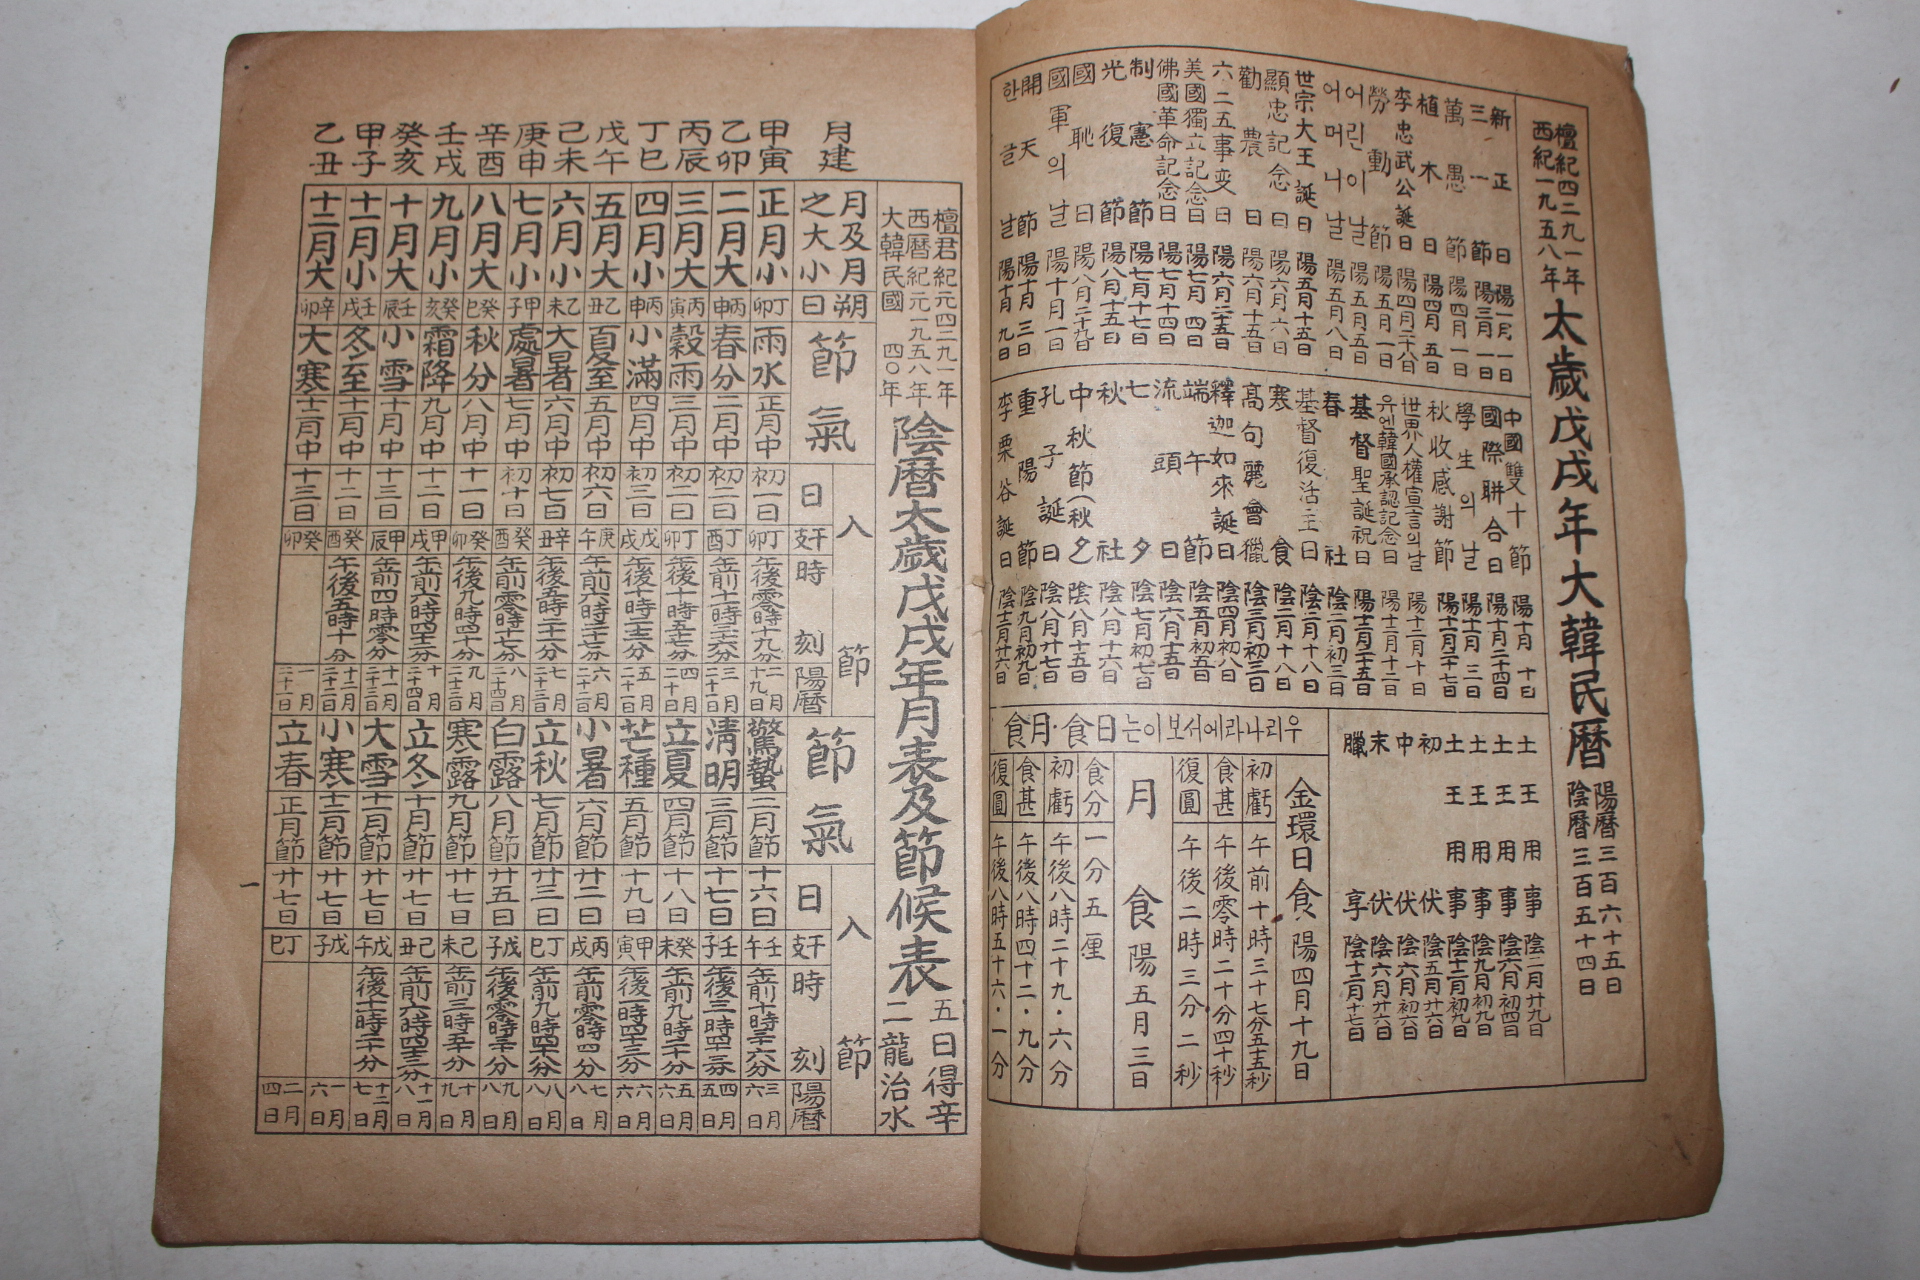 檀紀四二九一年
西紀一九五八年
太歲戊戌年大韓民曆
陽曆三百六十五日
陰曆三百五十四日
新正日 陽一月一日
三一節 陽三月一日
萬愚節 陽四月一日
植木日 陽四月五日
李忠武公誕日 陽四月二十八日
勞動節 陽五月一日
어린이날 陽五月五日
어머니날 陽五月八日
世宗大王誕日 陽五月十五日
顯忠記念日 陽六月六日
勸農日 陽六月十五日
六·二五事変日 陽六月二十五日
美國獨立記念日 陽七月四日
佛國革命記念日 陽七月十四日
制憲節 陽七月十七日
光復節 陽八月十五日
國恥日 陽八月二十九日
國軍의날 陽十月一日
開天節 陽十月三日
한글날 陽十月九日
中國雙十節 陽十月十日
國際聯合日 陽十月二十四日
學生의날 陽十一月三日
秋收感謝節 陽十一月二十七日
世界人權宣言의날 陽十二月十日
유엔韓國承認記念日 陽十二月十二日
基督聖誕祝日 陽十二月二十五日
春社 陰二月初三日
基督復活主日 陰二月十八日
寒食 陰二月十八日
高句麗會獵 陰三月初三日
釋迦如來誕日 陰四月初八日
端午節 陰五月初五日
流頭日 陰六月十五日
七夕 陰七月初七日
秋社 陰八月十六日
中秋節(秋夕 陰八月十五日
孔子誕日 陰八月廿七日
重陽節 陰九月初九日
李栗谷誕日 陰十二月廿六日
土王用事 陰二月廿九日
土王用事 陰六月初四日
土王用事 陰九月初九日
土王用事 陰十二月初九日
初伏 陰五月廿六日
中伏 陰六月初六日
末伏 陰六月廿六日
臘享 陰十二月十七日
우리나라에서보이는日食·月食
金環日食 陽四月十九日
初虧 午前十時三十七分五十五秒
食甚 午後零時二十分四十秒
復圓 午後二時三分二秒
月食 陽五月三日
食分 一分五厘
初虧 午後八時二十九·六分
食甚 午後八時四十二·九分
復圓 午後八時五十六·一分
檀君紀元四二九一年
西曆紀元一九五八年
大韓民國四〇年
陰曆太歲戊戌年月表及節候表
五日得辛
二龍治水
月建 月及月之大小 朔日 節氣 入節 日 干支 時刻 陽曆 節氣 入節 日 干支 時刻 陽曆
甲寅 正月小 丁卯 雨水 正月中 初一日 丁卯 午後零時十九分 二月十九日 驚蟄 二月節 十六日 壬午 午前十時三十六分 三月六日
乙卯 二月大 丙申 春分 二月中 初二日 丁酉 午前十一時三十六分 三月二十一日 清明 三月節 十七日 壬子 午後三時四十三分 四月五日
丙辰 三月大 丙寅 穀雨 三月中 初二日 丁卯 午後十時五十七分 四月二十日 立夏 四月節 十八日 癸未 午前九時二十分 五月六日
丁巳 四月小 丙申 小滿 四月中 初三日 戊戌 午後十時二十三分 五月二十一日 芒種 五月節 十九日 甲寅 午後一時四十三分 六月六日
戊午 五月大 乙丑 夏至 五月中 初六日 庚午 午前六時二十七分 六月二十二日 小暑 六月節 廿二日 丙戌 午前零時四分 七月八日
己未 六月小 乙未 大暑 六月中 初七日 辛丑 午後五時二十一分 七月二十三日 立秋 七月節 廿三日 丁巳 午前九時四十八分 八月八日
庚申 七月小 甲子 處暑 七月中 初十日 癸酉 午前零時十七分 八月二十四日 白露 八月節 廿五日 戊子 午後零時三十分 九月八日
辛酉 八月大 癸巳 秋分 八月中 十一日 癸卯 午後九時四十分 九月二十三日 寒露 九月節 廿七日 己未 午前三時五十分 十月九日
壬戌 九月小 癸亥 霜降 九月中 十二日 甲戌 午前六時四十二分 十月二十四日 立冬 十月節 廿七日 己丑 午前六時四十三分 十一月八日
癸亥 十月大 壬辰 小雪 十月中 十三日 甲辰 午前四時零分 十一月二十三日 大雪 十一月節 廿七日 戊午 午後十一時二十分 十二月七日
甲子 十一月小 壬戌 冬至 十一月中 十二日 癸酉 午後五時十分 十二月二十二日 小寒 十二月節 廿七日 戊子 一月六日
乙丑 十二月大 辛卯 大寒 十二月中 十三日 癸卯 一月二十一日 立春 正月節 廿七日 丁巳 二月四日
一